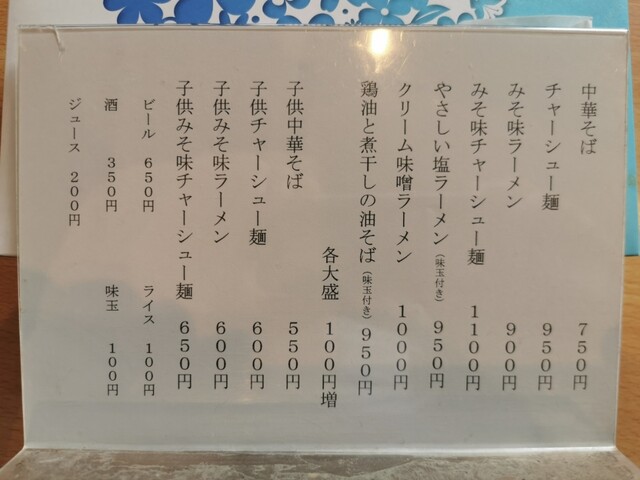 中華そば 750円
チャーシュー麺 950円
みそ味ラーメン 900円
みそ味チャーシュー麺 1100円
やさしい塩ラーメン(味玉付き) 950円
クリーム味噌ラーメン 1000円
鶏油と煮干しの油そば(味玉付き) 950円
各大盛 100円増
子供中華そば 550円
子供チャーシュー麺 600円
子供みそ味ラーメン 600円
子供みそ味チャーシュー麺 650円
ビール 650円 ライス 100円
酒 350円 味玉 100円
ジュース 200円